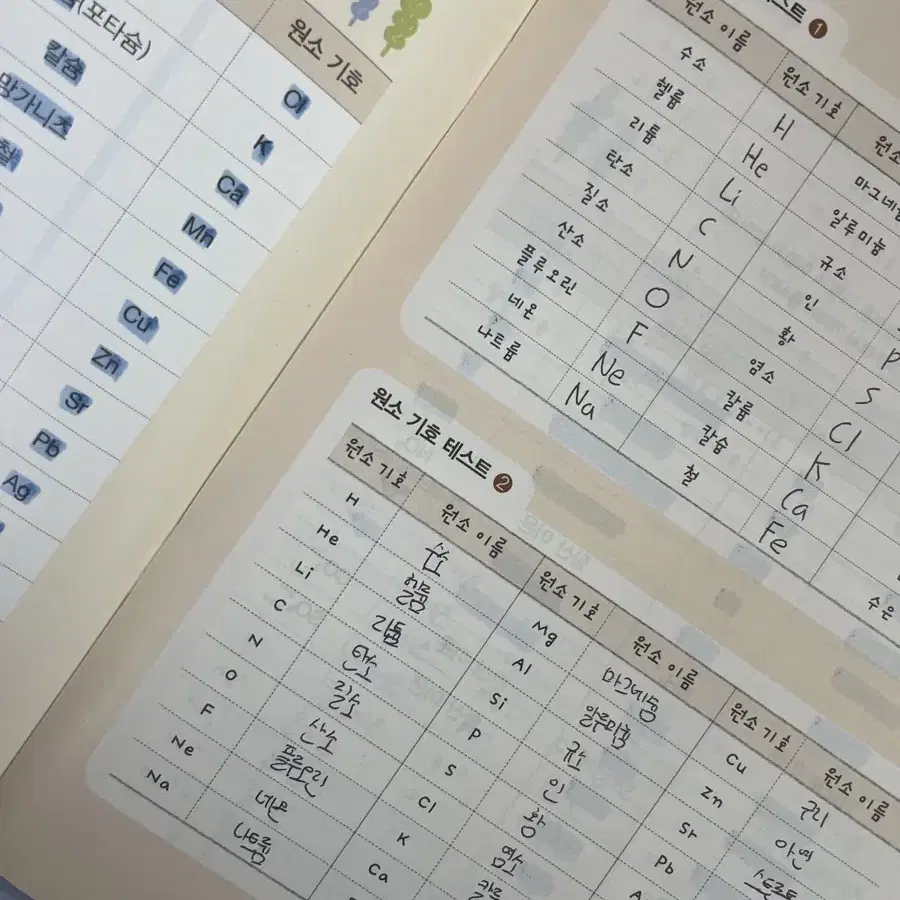 (포타슘)
원소 기호
칼슘
망가니즈
철
K
Ca
Mn
Fe
Cu
Zn
Sr
Pb
Ag
테스트 1
원소 이름 원소 기호
수소 H 마그네
헬륨 He 알루미늄
리튬 Li 규소
탄소 C 인 P
질소 N 황 S
산소 O 염소 Cl
플루오린 F 칼륨 K
네온 Ne 칼슘 Ca
나트륨 Na 철 Fe
수은
원소 기호 테스트 2
원소 기호 원소 이름 원소 기호 원소 이름 원소 기호 원소 이름
H 수소 Mg 마그네슘 Cu 구리
He 헬륨 Al 알루미늄 Zn 아연
Li 리튬 Si 규소 Sr
C 탄소 P 인 Pb
N 질소 S 황
O 산소 Cl 염소
F 플루오린 K
Ne 네온 Ca
Na 나트륨